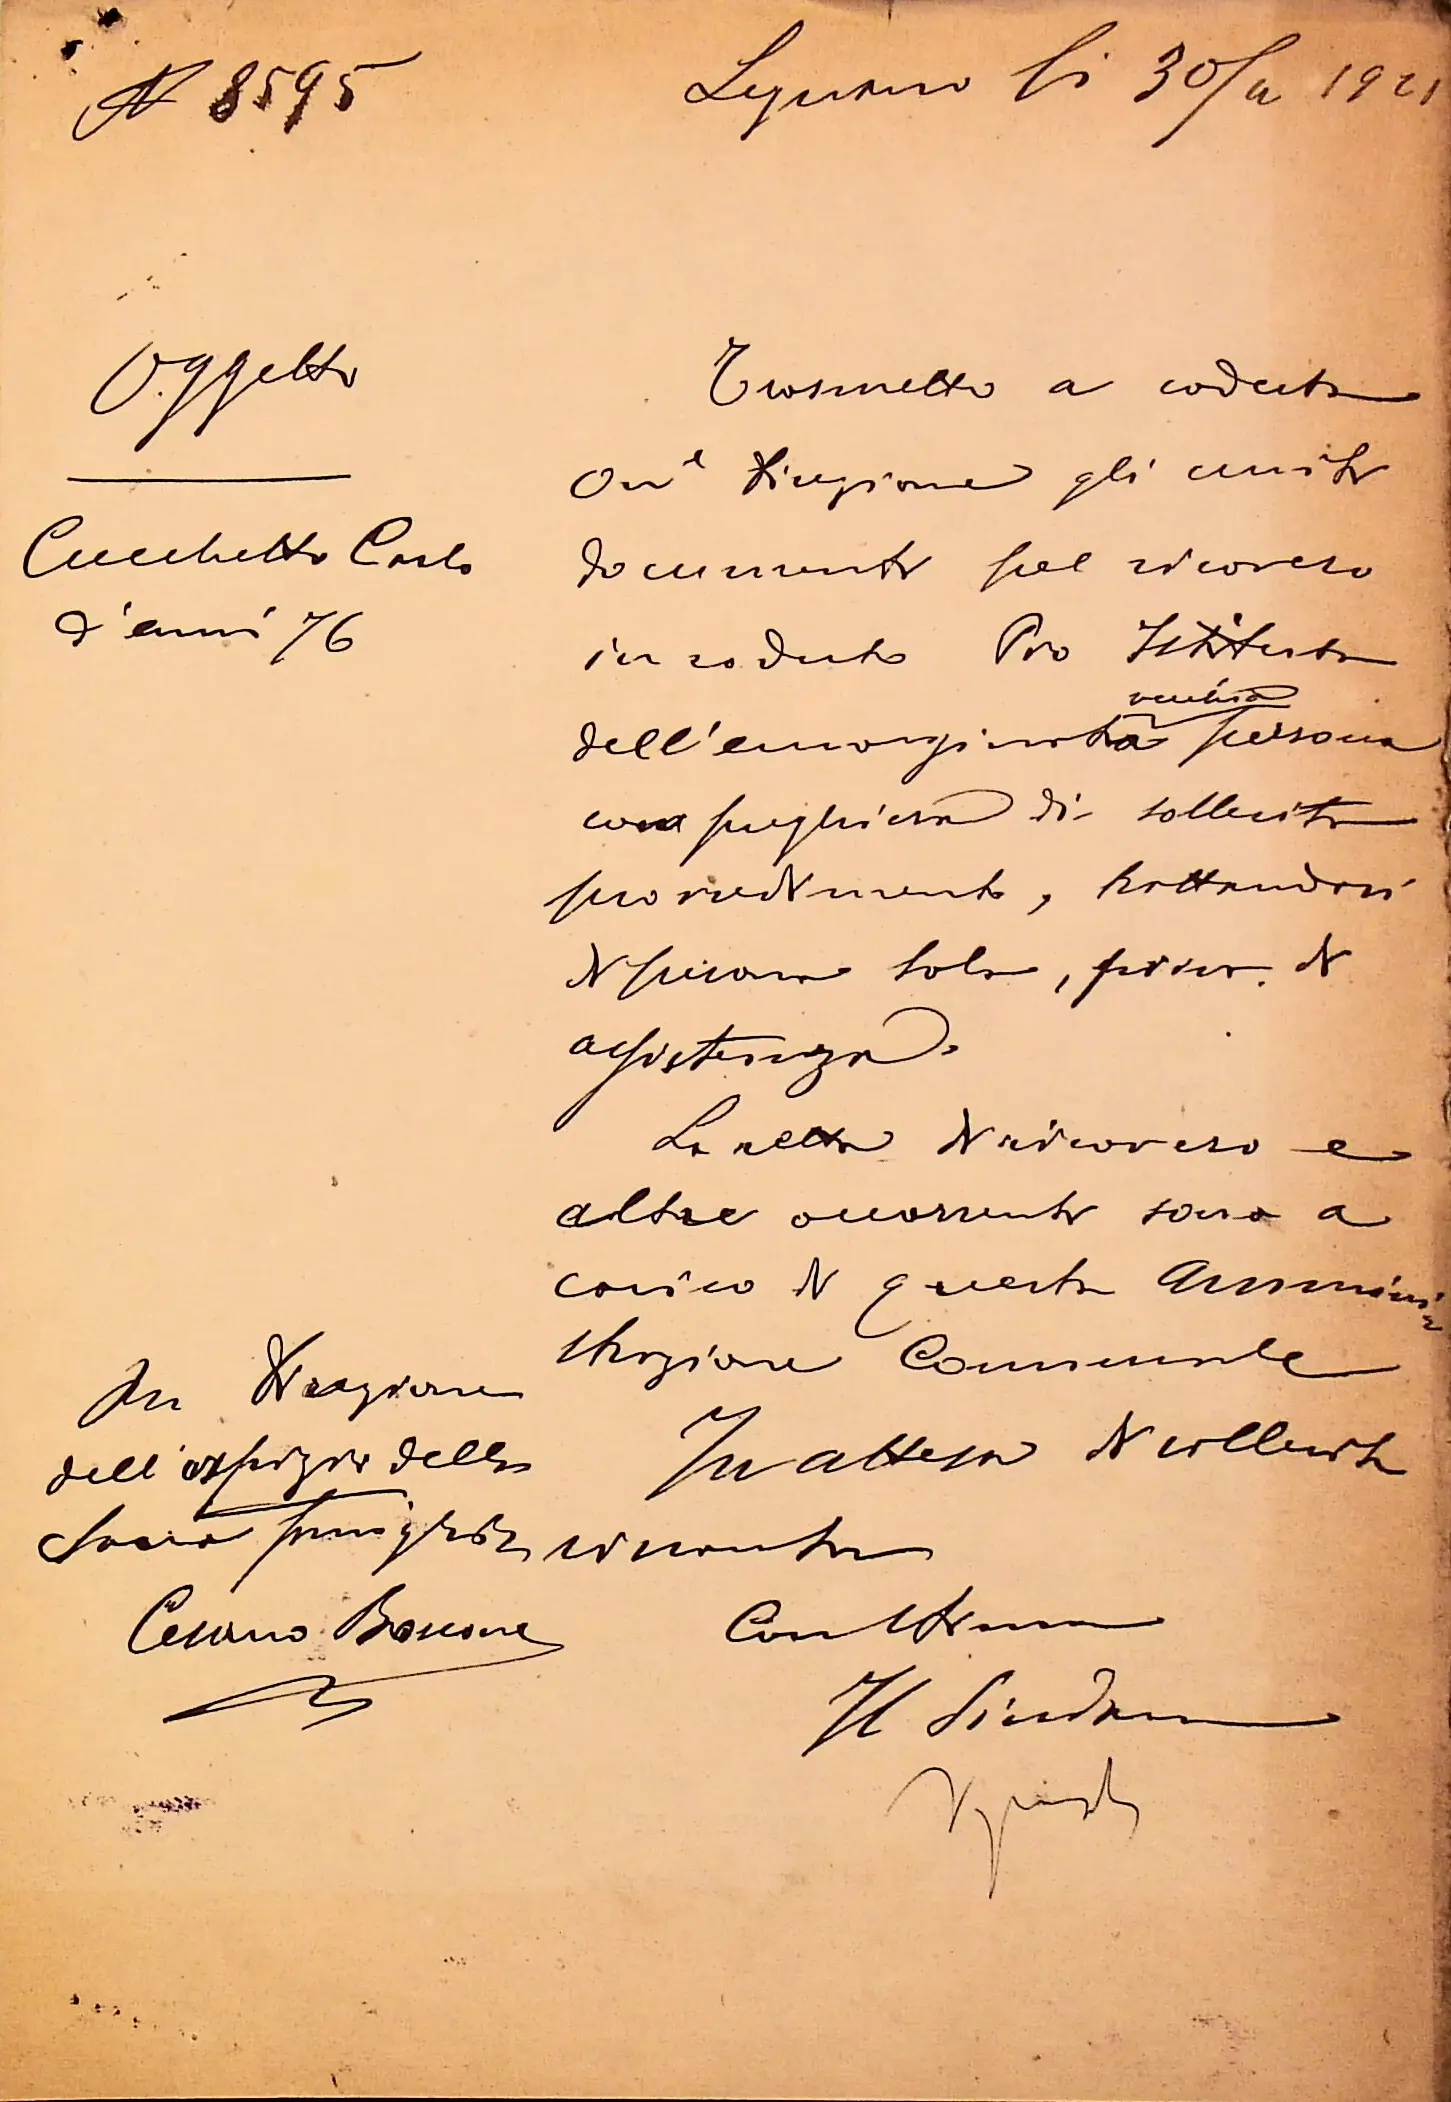 N 8595
Legnano li 30/ 1921
Oggetto
Cucchetto Carlo
d'anni 76
Trasmetto a codesta
On.le Direzione gli uniti
documenti pel ricovero
in codesto Pro Istituto
dell'emarginata vecchia persona
con preghiera di sollecito
provvedimento, trattandosi
di persona sola, priva di
assistenza.
La retta di ricovero e
altre occorrenti sono a
carico di questa Ammini-
strazione Comunale
In attesa di sollecito
riscontro
Con stima
Il Sindaco
On Direzione
dell'ospizio della
Sacra Famiglia
Cesano Boscone